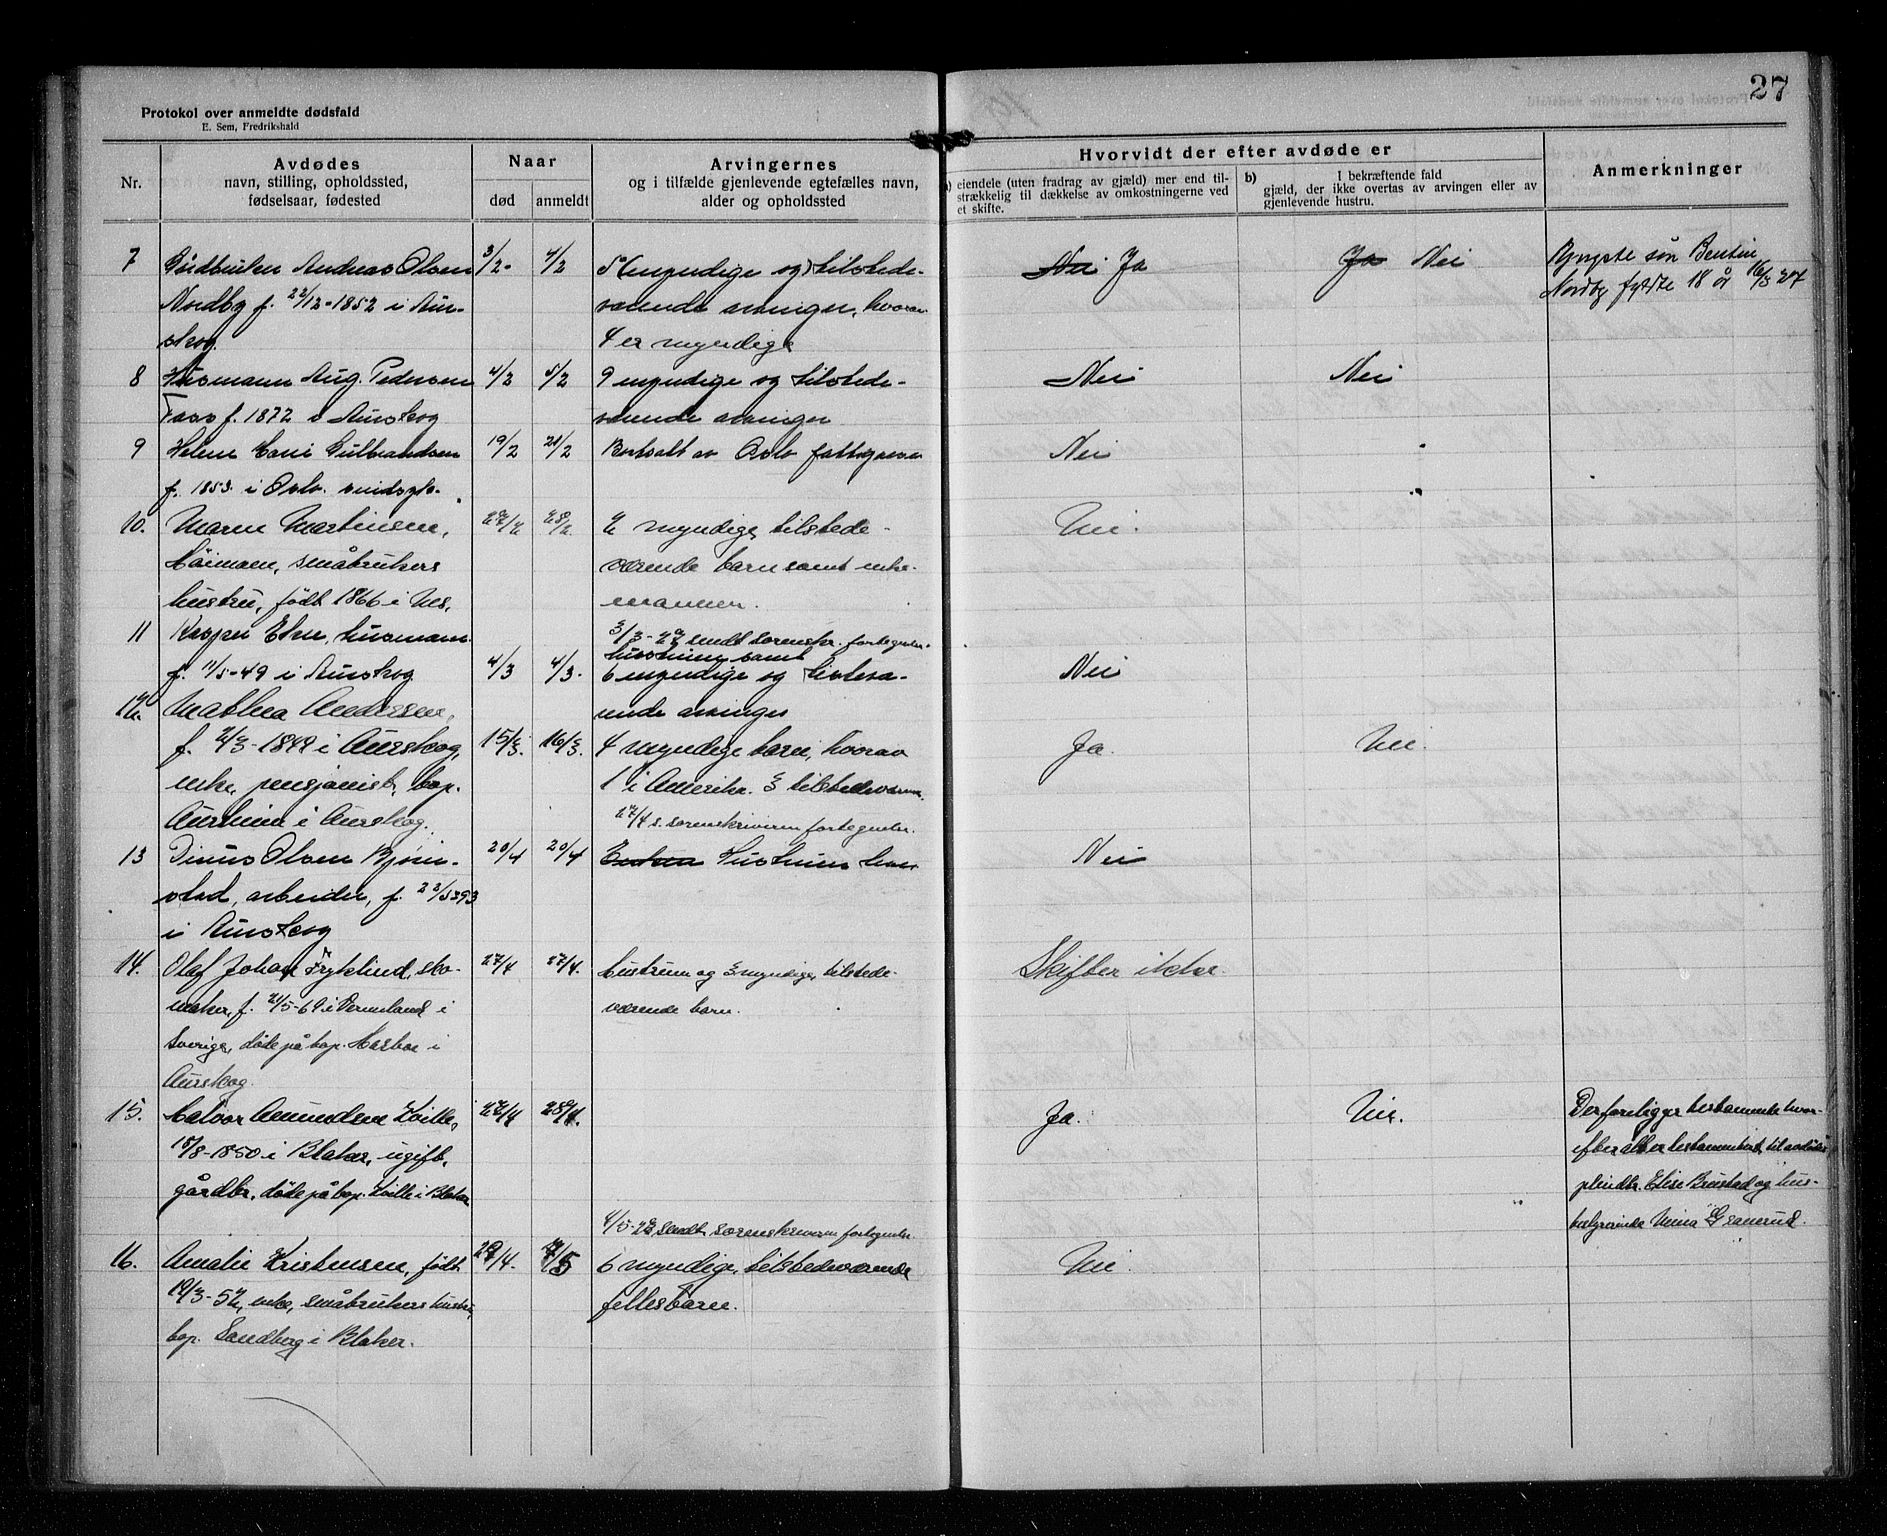 27
Protokol over anmeldte dødsfald
E. Sem, Fredrikshald
Nr.
Avdødes
navn, stilling, opholdssted,
fødselsaar, fødested
Naar
død
anmeldt
Arvingernes
og i tilfælde gjenlevende egtefælles navn,
alder og opholdssted
Hvorvidt der efter avdøde er
a) eiendele (uten fradrag av gjæld) mer end til-
strækkelig til dækkelse av omkostningerne ved
et skifte.
b) I bekræftende fald
gjæld, der ikke overtas av arvingen eller av
gjenlevende hustru.
Anmerkninger
7 Gårdbruker Andreas Olsen 3/2- 4/2 5 (myndige og) tilstede- Nei Ja Ja Nei Yngste søn Bentin
Nordby f. 22/12-1852 i Aur- værende arvinger, hvorav Nordby fyldte 18 år 16/3 27
skog. 4 er myndige
8 Husmann Aug. Pedersen 4/2 5/2 9 myndige og tilstede- Nei Nei
f. 1872 i Aurskog værende arvinger
9 Helene Marie Gulbrandsen 19/2 21/2 Bortsatt av Oslo fattigvesen Nei
f. 1853 i Oslo.
10. Maren Martinsen, 27/2 28/2 2 myndige, tilstede- Nei.
Høimann, småbrukers værende barn samt enke-
hustru, født 1866 i Nes. mannen.
3/3-27 sendt sorenskr. fortegnelse.
11 Kasper Eker, husmann hustruen samt
f. 11/5-49 i Aurskog 4/3 4/3. 6 myndige og tilsteva- Nei
12. Mathea Andersen, rende arvinger
f. 2/3-1849 i Aurskog, 15/3. 16/3. 4 myndige barn, hvorav Ja. Nei.
enke, pensjonist, bop. 1 i Amerika. 3 tilstedeværende.
Aurheim i Aurskog. 27/4 s. sorenskriveren fortegnelse.
13 Dinus Olsen Bjørn- 20/4 20/4 Hustruen Nei
stad, arbeider, f. 22/5 93
i Aurskog
14. Olaf Johan Fryklind, sko- 27/4 27/4. hustruen og 3 myndige, tilstede- Skifter ikke.
maker, f. 21/5-69 i Vermland i værende barn.
Sverige, døde på bop. Harbo i
Aurskog.
15. Halvor Amundsen Kville, 27/4 28/4. Ja. Nei. Der foreligger testamente hvor-
18/8-1850 i Blaker, ugift, efter alt er testamentert til avdødes
gårdbr., døde på bop. Kville i Blaker Elise Brustad og hus-
4/5-27 sendt sorenskriveren fortegnelse. bestyrerinde Mina Granerud.
16. Amalie Kristensen, født 29/4. 2/5 6 myndige, tilstedeværende Nei.
19/3-52, enke, småbrukers hustru, fellesbarn.
bop. Sandberg i Blaker.